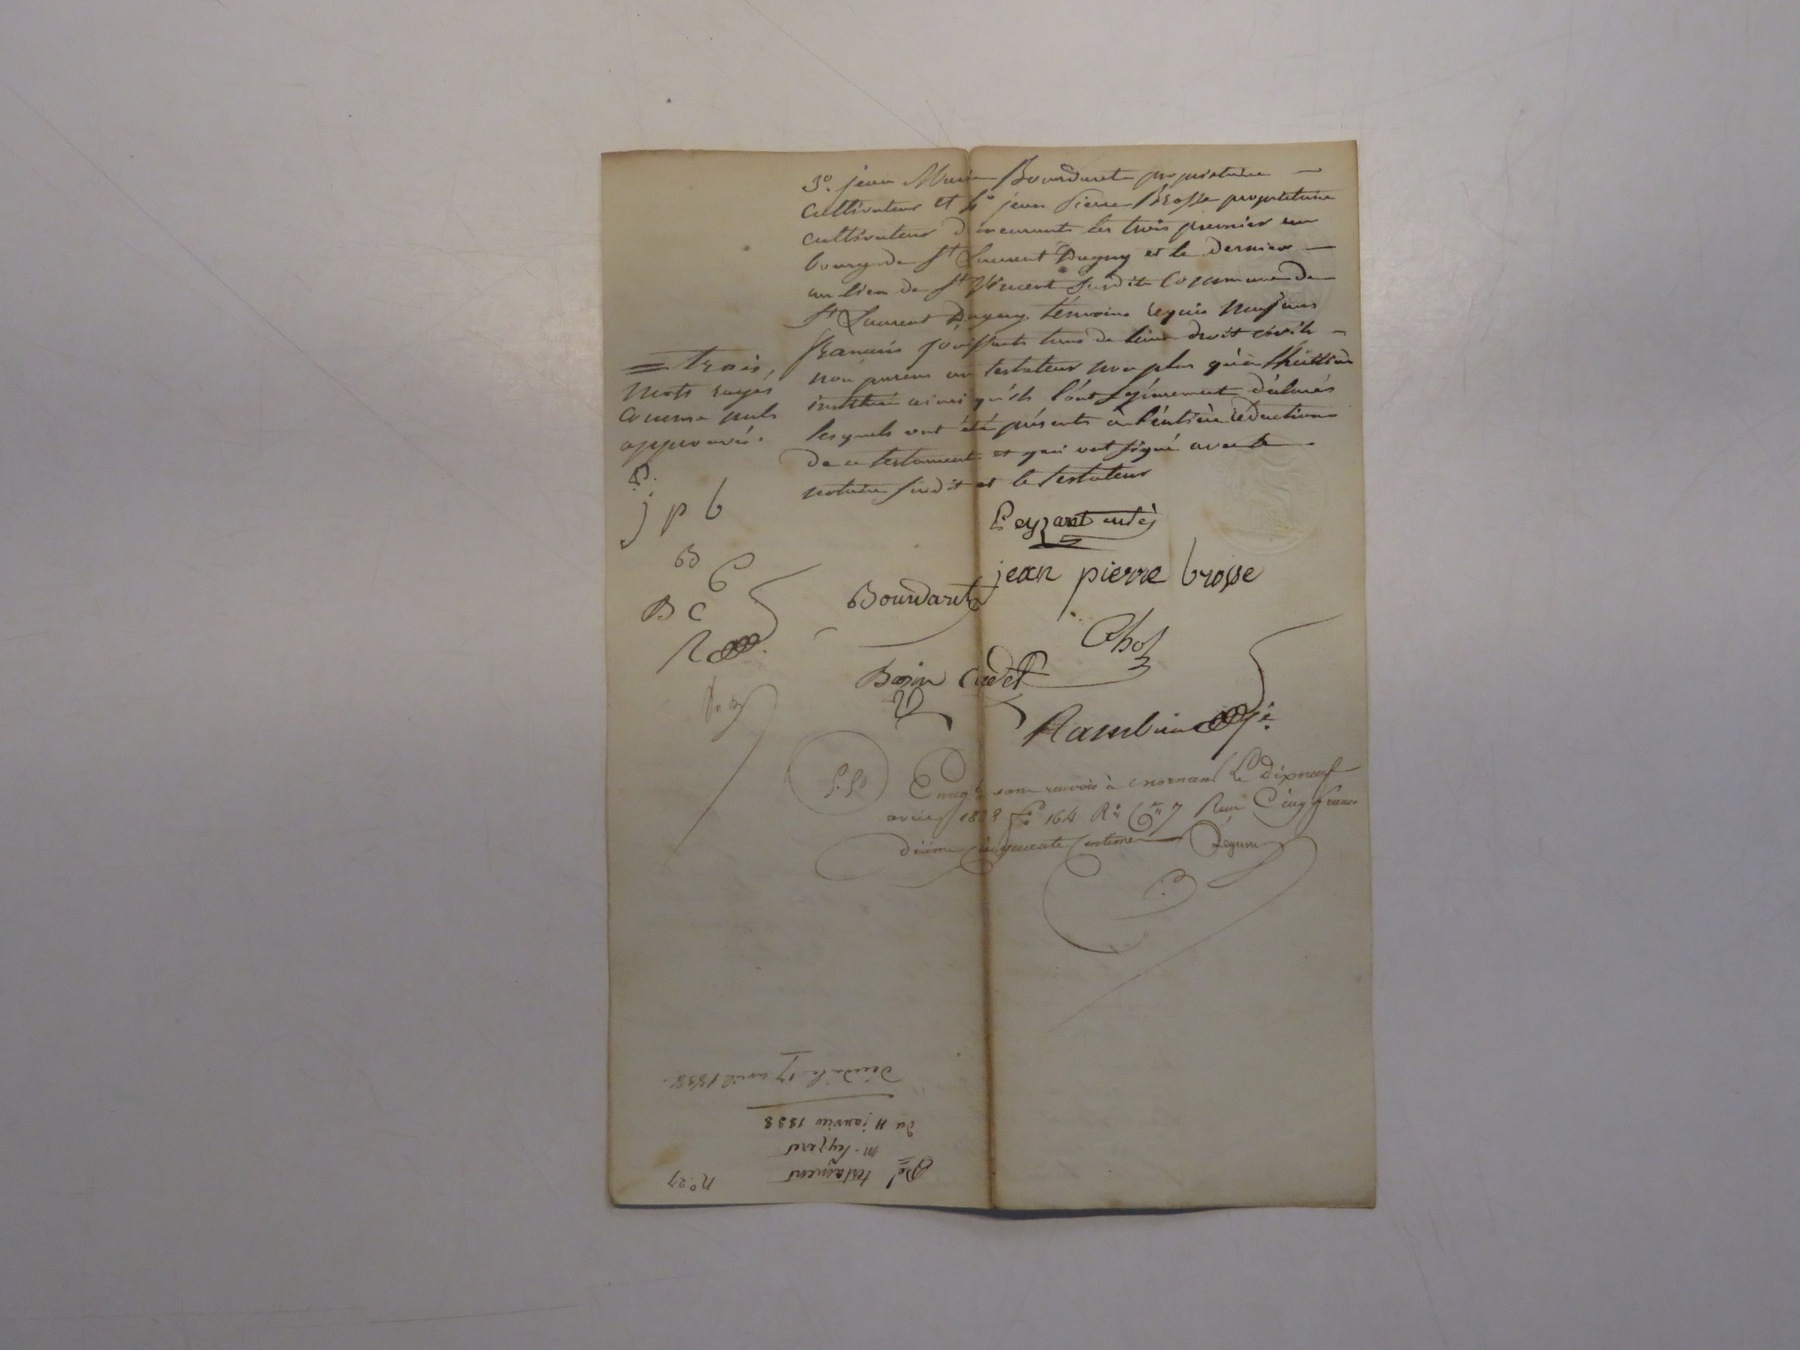 3º. jean Marie Bourdaret propriétaire
cultivateur et 4º jean Pierre Brosse propriétaire
cultivateur demeurants les trois premier au
bourg de St Laurent Dagny et le dernier
au lieu de St Vincent susdite Commune de
St Laurent Dagny. témoins requis
français jouissants tous de leur droit civils
non parens au testateur non plus qu'à
instituée ainsi qu'ils l'ont déclarés
lesquels ont été présents à l'entière rédaction
de ce testament et qui ont signé avec le
notaire susdit et le testateur
= trois,
mots rayés
comme nuls
approuvés.
P.
j p b
BD
C
B C
R
Peyzaret
jean pierre brosse
Bourdaret
Chol
Bazin Cadet
Rambin
P.P.
sans renvois à mornant Le dixneuf
avril 1838 Fº 164 Rº Cce 7 Reçu Cinq francs
décime cinquante centimes
nº. 27
testament
M. Peyzaret
du 11 janvier 1838
Décédé le 17 avril 1838.